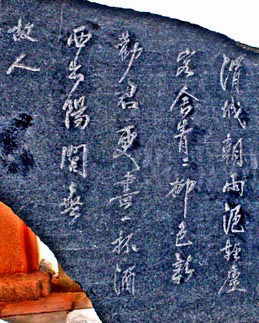 渭城朝雨浥輕塵
客舍青〻柳色新
勸君更盡一杯酒
西出陽關無
故人